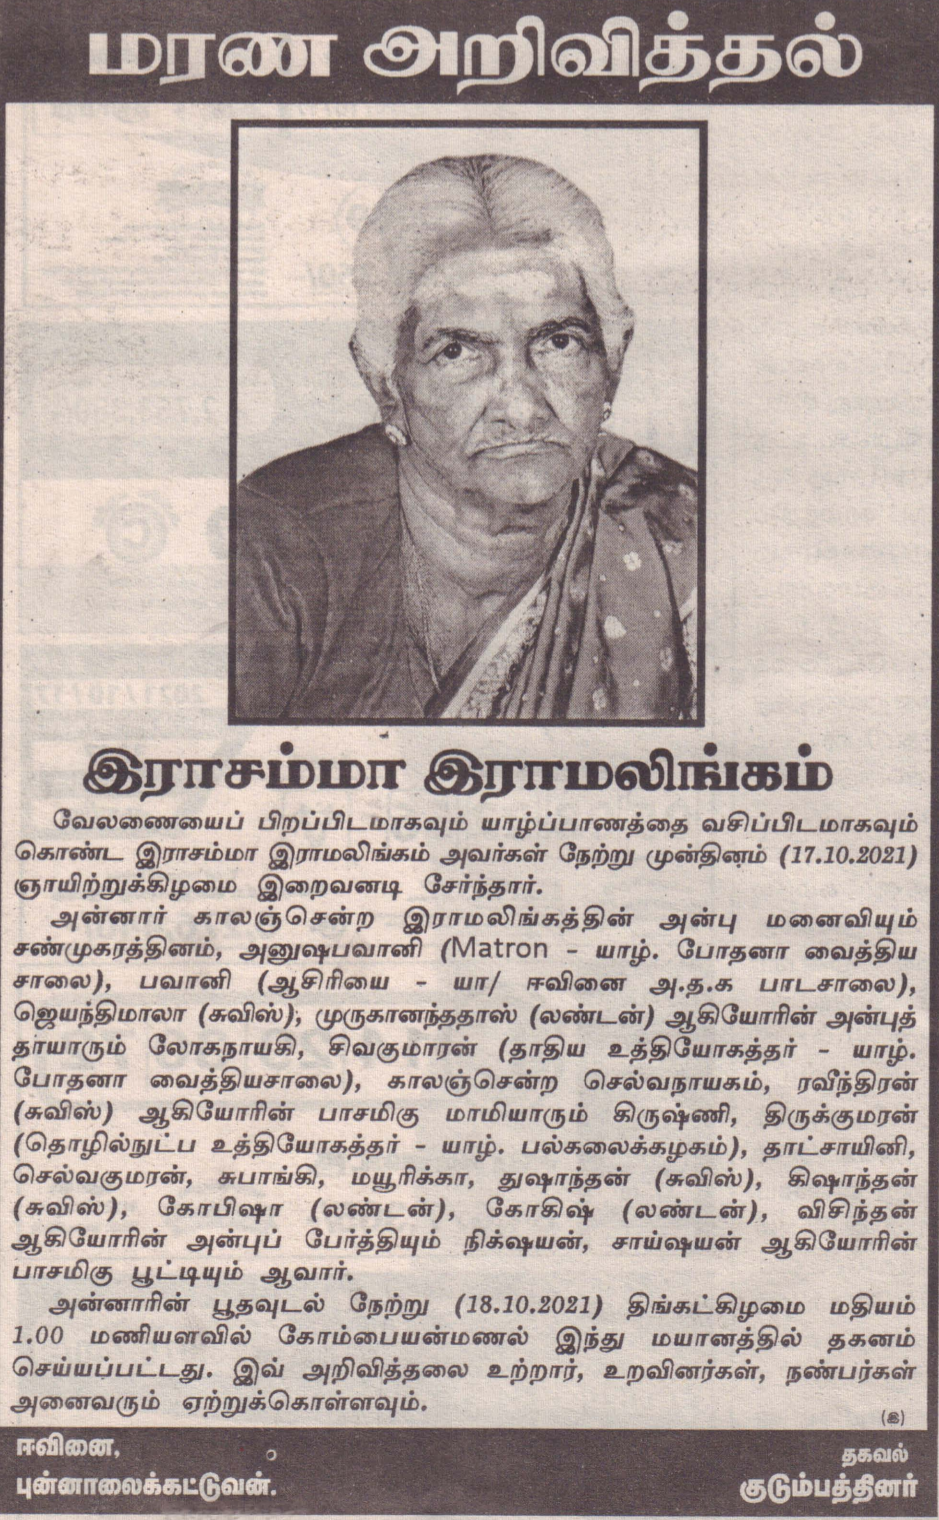 மரண அறிவித்தல்
இராசம்மா இராமலிங்கம்
வேலணையைப் பிறப்பிடமாகவும் யாழ்ப்பாணத்தை வசிப்பிடமாகவும்
கொண்ட இராசம்மா இராமலிங்கம் அவர்கள் நேற்று முன்தினம் (17.10.2021)
ஞாயிற்றுக்கிழமை இறைவனடி சேர்ந்தார்.
அன்னார் காலஞ்சென்ற இராமலிங்கத்தின் அன்பு மனைவியும்
சண்முகரத்தினம், அனுஷபவானி (Matron - யாழ். போதனா வைத்திய
சாலை), பவானி (ஆசிரியை - யா/ ஈவினை அ.த.க பாடசாலை),
ஜெயந்திமாலா (சுவிஸ்), முருகானந்ததாஸ் (லண்டன்) ஆகியோரின் அன்புத்
தாயாரும் லோகநாயகி, சிவகுமாரன் (தாதிய உத்தியோகத்தர் - யாழ்.
போதனா வைத்தியசாலை), காலஞ்சென்ற செல்வநாயகம், ரவீந்திரன்
(சுவிஸ்) ஆகியோரின் பாசமிகு மாமியாரும் கிருஷ்ணி, திருக்குமரன்
(தொழில்நுட்ப உத்தியோகத்தர் - யாழ். பல்கலைக்கழகம்), தாட்சாயினி,
செல்வகுமரன், சுபாங்கி, மயூரிக்கா, துஷாந்தன் (சுவிஸ்), கிஷாந்தன்
(சுவிஸ்), கோபிஷா (லண்டன்), கோகிஷ் (லண்டன்), விசிந்தன்
ஆகியோரின் அன்புப் பேர்த்தியும் நிக்ஷயன், சாய்ஷயன் ஆகியோரின்
பாசமிகு பூட்டியும் ஆவார்.
அன்னாரின் பூதவுடல் நேற்று (18.10.2021) திங்கட்கிழமை மதியம்
1.00 மணியளவில் கோம்பையன்மணல் இந்து மயானத்தில் தகனம்
செய்யப்பட்டது. இவ் அறிவித்தலை உற்றார், உறவினர்கள், நண்பர்கள்
அனைவரும் ஏற்றுக்கொள்ளவும்.
(இ)
ஈவினை,
புன்னாலைக்கட்டுவன்.
தகவல்
குடும்பத்தினர்